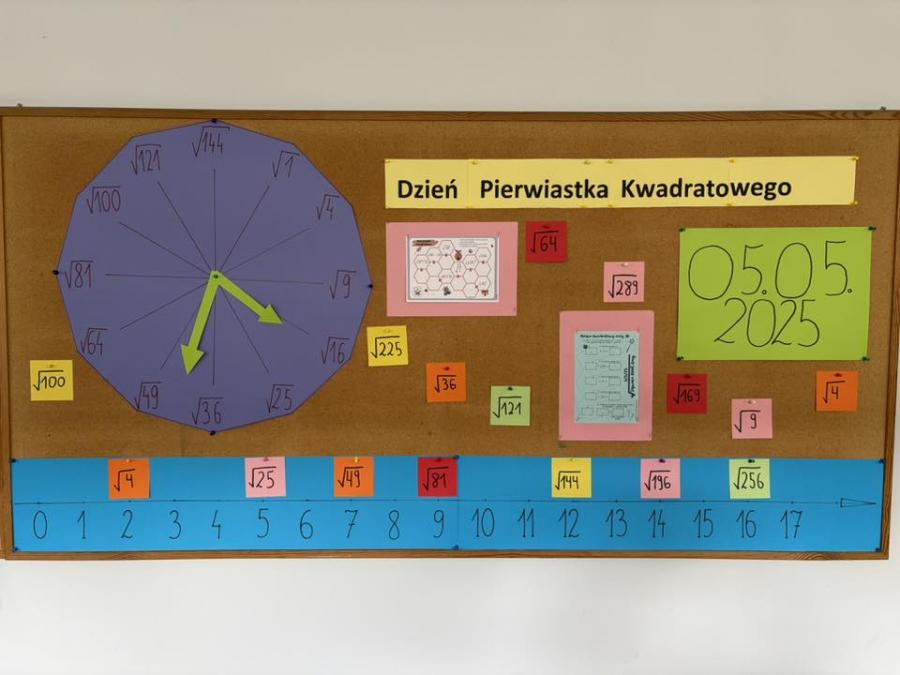 √144
√121
√1
√100
√4
√81
√9
√64
√16
√49
√36
√25
Dzień Pierwiastka Kwadratowego
05.05.
2025
√64
√289
√225
√100
√36
√121
√169
√9
√4
√4
√25
√49
√81
√144
√196
√256
0 1 2 3 4 5 6 7 8 9 10 11 12 13 14 15 16 17